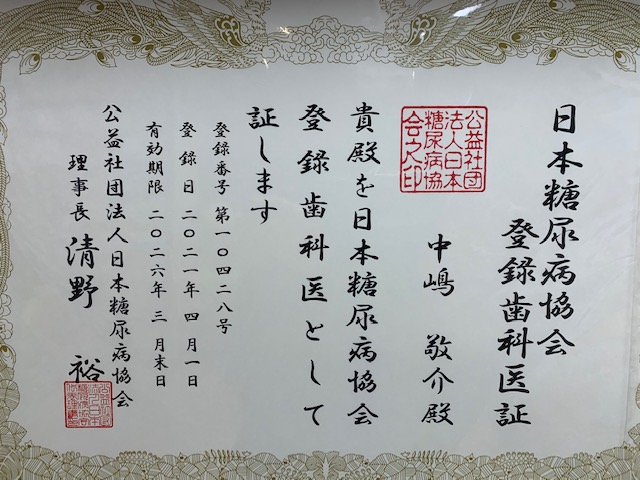 日本糖尿病協会
登録歯科医証
公益社団
法人日本
糖尿病協
会之印
中嶋 敬介殿
貴殿を日本糖尿病協会
登録歯科医として
証します
登録番号 第一〇四二八号
登録日 二〇二一年 四月一日
有効期限 二〇二六年 三月末日
公益社団法人日本糖尿病協会
理事長 清野 裕